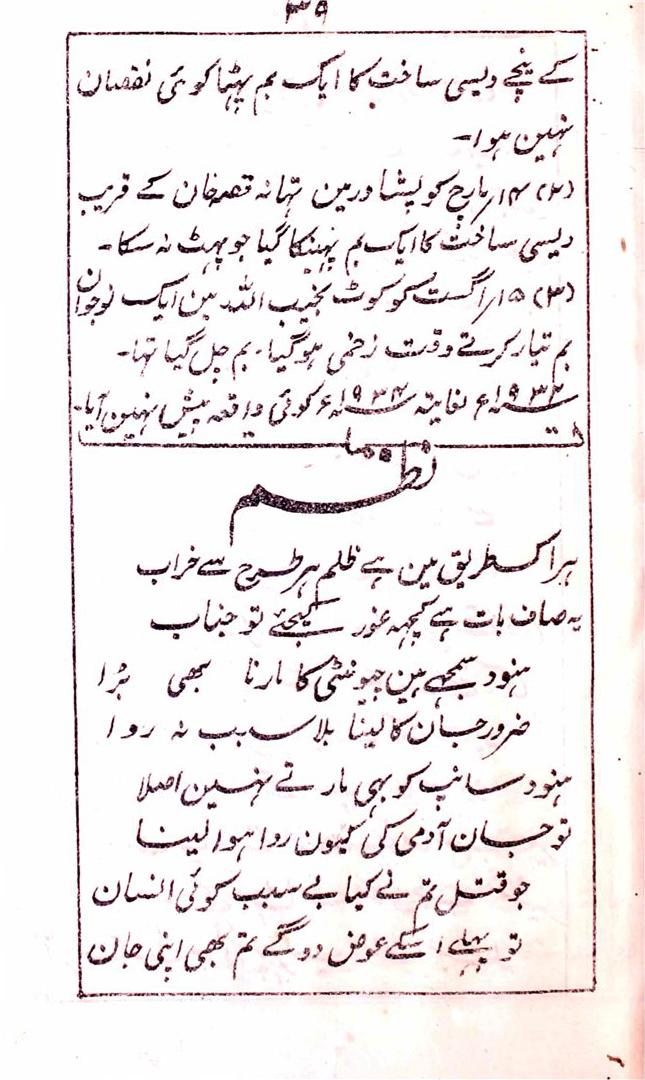 ۳۹
کے نیچے دیسی ساخت کا ایک بم پہٹا کوئی نقصان
نہین ہوا۔
(۲) ۱۴؍مارچ کو پشاور مین تہانہ قصہ خان کے قریب
دیسی ساخت کا ایک بم پہینکا گیا جو پہٹ نہ سکا۔
(۳) ۱۵؍اگست کو کوٹ نجیب اللہ مین ایک نوجوان
بم تیار کرتے وقت زخمی ہوگیا۔ بم چل گیا تہا۔
۱۹۳۲ء لغایتہ ۱۹۳۴ء کوئی واقعہ پیش نہین آیا۔
نظم
ہر اک طریق مین ہے ظلم ہر طرح سے خراب
یہ صاف بات ہے کچہہ غور کیجئے تو جناب
ہنود سمجہے ہین چیونٹی کا مارنا بھی بڑا
ضرور جان کا لینا بلا سبب نہ روا
ہنود سانپ کو بہی مارتے نہین اصلا
تو جان آدمی کی کیون روا ہوا لینا
جو قتل تم نے کیا بے سبب کوئی انسان
تو پہلے اسکے عوض دوگے تم بھی اپنی جان